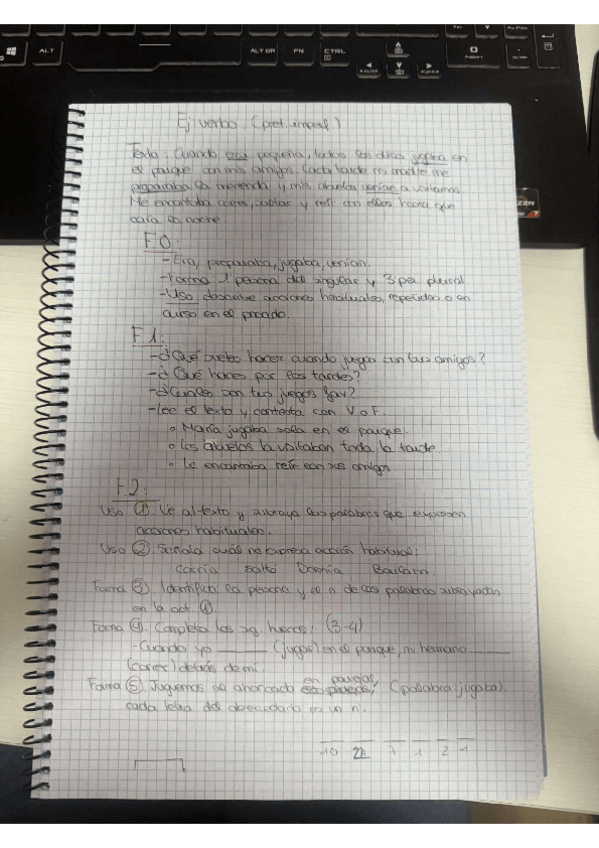 ALT
ALT GR
FN
CTRL
Ej: verbo (pret. imperf.)
Texto: Cuando era pequeña, todos los días jugaba en
el parque con mis amigos. Cada tarde mi madre me
preparaba la merienda y mis abuelos venían a visitarnos.
Me encantaba correr, saltar y reír con ellos hasta que
caía la noche.
F.0:
- Era, preparaba, jugaba, venían.
- Forma 1ª persona del singular y 3ª per plural
- Uso: describe acciones habituales, repetidas o en
curso en el pasado.
F.1:
- ¿Qué sueles hacer cuando juegas con tus amigos?
- ¿Qué haces por las tardes?
- ¿Cuáles son tus juegos fav?
- Lee el texto y contesta con V o F.
o María jugaba sola en el parque.
o Los abuelos la visitaban toda la tarde
o Le encantaba reír con sus amigos
F.2:
Uso ①. Ve al texto y subraya las palabras que expresen
acciones habituales.
Uso ② Señala cuál no expresa acción habitual:
Corría Saltó Dormía Bailaba.
Forma ③. Identifica la persona y el n de las palabras subrayadas
en la act. ①.
Forma ④. Completa los sg. huecos: (3-4)
- Cuando yo ______ (jugar) en el parque, mi hermano ______
(correr) detrás de mí.
Forma ⑤. Juguemos al ahorcado en parejas, (palabra jugaba).
cada letra del abecedario es un n.
10 22 7 1 2 1